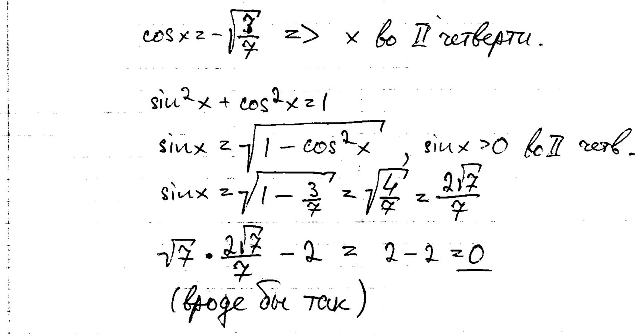 cosx = -√(3/7) => x во II четверти.
sin²x + cos²x = 1
sinx = √(1 - cos²x), sinx > 0 во II четв.
sinx = √(1 - 3/7) = √(4/7) = 2√7/7
√7 · 2√7/7 - 2 = 2 - 2 = 0
(вроде бы так)